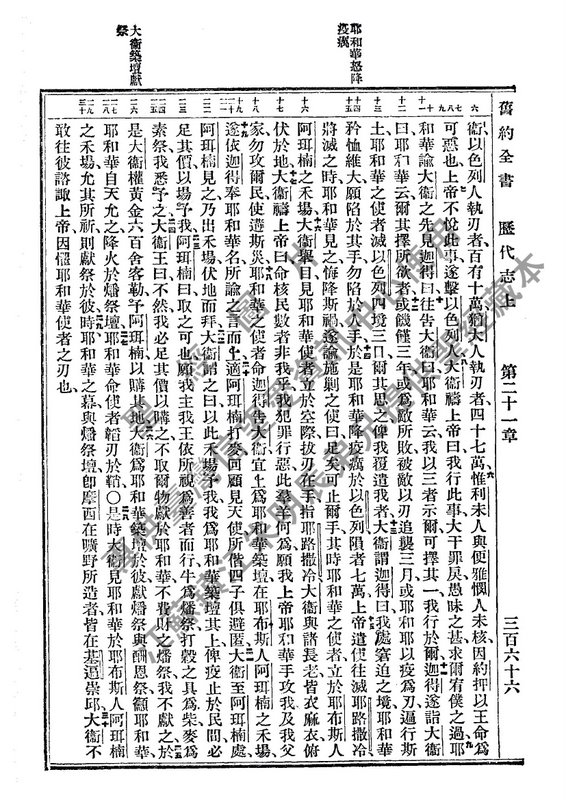 舊約全書 歷代志上 第二十一章 三百六十六
耶和華怒降疫癘
大衛築壇獻祭
衛以色列人執刃者百有十萬猶大人執刃者四十七萬惟利未人與便雅憫人未核因約押以王命爲
可惡也上帝不悅此事遂擊以色列人大衛禱上帝曰我行此事大干罪戾愚昧之甚求爾宥僕之過耶
和華諭大衛之先見迦得曰往告大衛曰耶和華云我以三者示爾可擇其一我行於爾迦得遂詣大衛
曰耶和華云爾其擇所欲者或饑饉三年或爲敵所敗被敵以刃追襲三月或耶和耶以疫爲刃遍行斯
土耶和華之使者滅以色列四境三日爾其思之俾我覆遣我者大衛謂迦得曰我處窘迫之境耶和華
矜恤維大願陷於其手勿陷於人手於是耶和華降疫癘於以色列隕者七萬上帝遣使往滅耶路撒冷
將滅之時耶和華見之悔降斯禍遂諭施剿之使曰足矣可止爾手其時耶和華之使者立於耶布斯人
阿珥楠之禾場大衛舉目見耶和華使者立於空際拔刃在手指耶路撒冷大衛與諸長老皆衣麻衣俯
伏於地大衛禱上帝曰命核民數者非我乎我犯罪行惡此羣羊何爲願我上帝耶和華手攻我及我父
家勿攻爾民使遘斯災耶和華之使者命迦得告大衛宜上爲耶和華築壇在耶布斯人阿珥楠之禾場
遂依迦得奉耶和華名所諭之言而上適阿珥楠打麥回顧見天使所偕四子俱避匿大衛至阿珥楠處
阿珥楠見之乃出禾場伏地而拜大衛謂之曰以此禾場予我我爲耶和華築壇其上俾疫止於民間必
足其價以場予我阿珥楠曰取之可也願我主我王依所視爲善者而行牛爲燔祭打穀之具爲柴麥爲
素祭我悉予之大衛王曰不然我必足其價以購之不取爾物獻於耶和華不費則之燔祭我不獻之於
是大衛權黃金六百舍客勒予阿珥楠以購其地大衛爲耶和華築壇於彼獻燔祭與酬恩祭籲耶和華
耶和華自天允之降火於燔祭壇耶和華命使者韜刃於鞘○是時大衛見耶和華於耶布斯人阿珥楠
之禾場允其所祈則獻祭於彼時耶和華之幕與燔祭壇卽摩西在曠野所造者皆在基遍崇邱大衛不
敢往彼諮諏上帝因懼耶和華使者之刃也